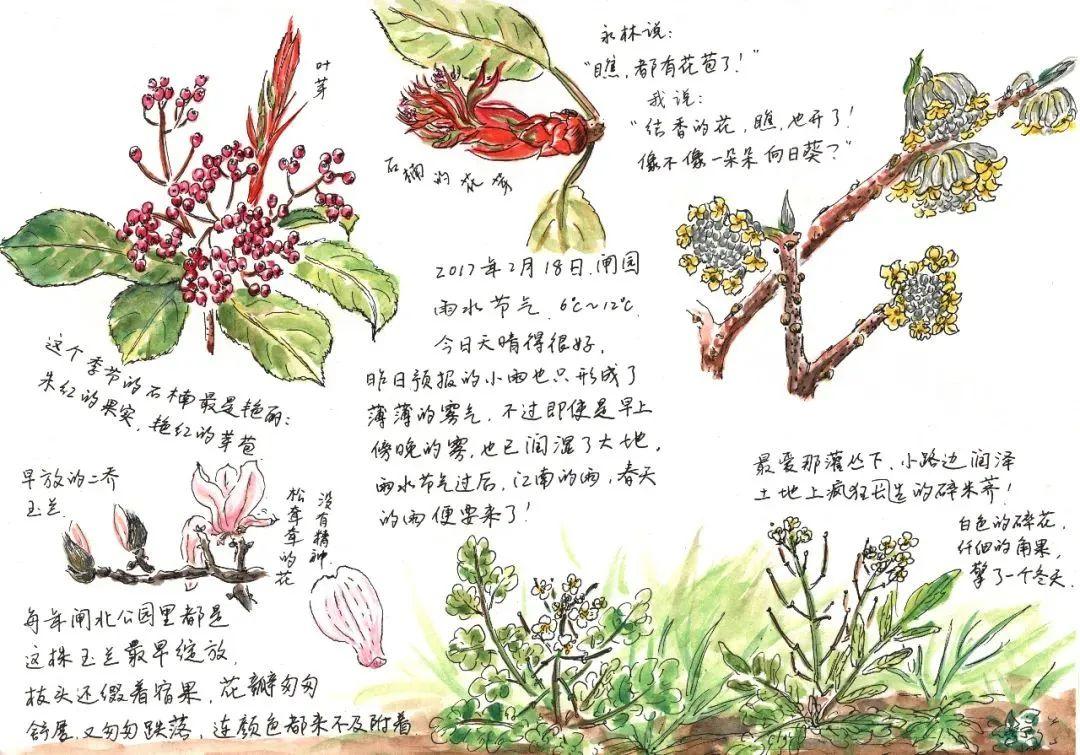 叶芽
永林说：
“瞧，都有花苞了！”
我说：
“结香的花，瞧，也开了！
像不像一朵朵向日葵？”
石楠的花序
2017年2月18日.闸园
雨水节气. 6℃~12℃.
今日天晴得很好，
昨日预报的小雨也只形成了
薄薄的雾气. 不过即使是早上
傍晚的雾，也已润湿了大地，
雨水节气过后，江南的雨，春天
的雨便要来了！
这个季节的石楠最是艳丽：
朱红的果实，艳红的芽苞
早放的二乔
玉兰.
没有精神
松耷耷的花
每年闸北公园里都是
这株玉兰最早绽放，
枝头还假着宿果，花瓣匆匆
舒展又匆匆跌落，连颜色都来不及附着
最爱那灌丛下，小路边润泽
土地上疯狂生的碎米荠！
白色的碎花，
纤细的角果，
擎了一个冬天.